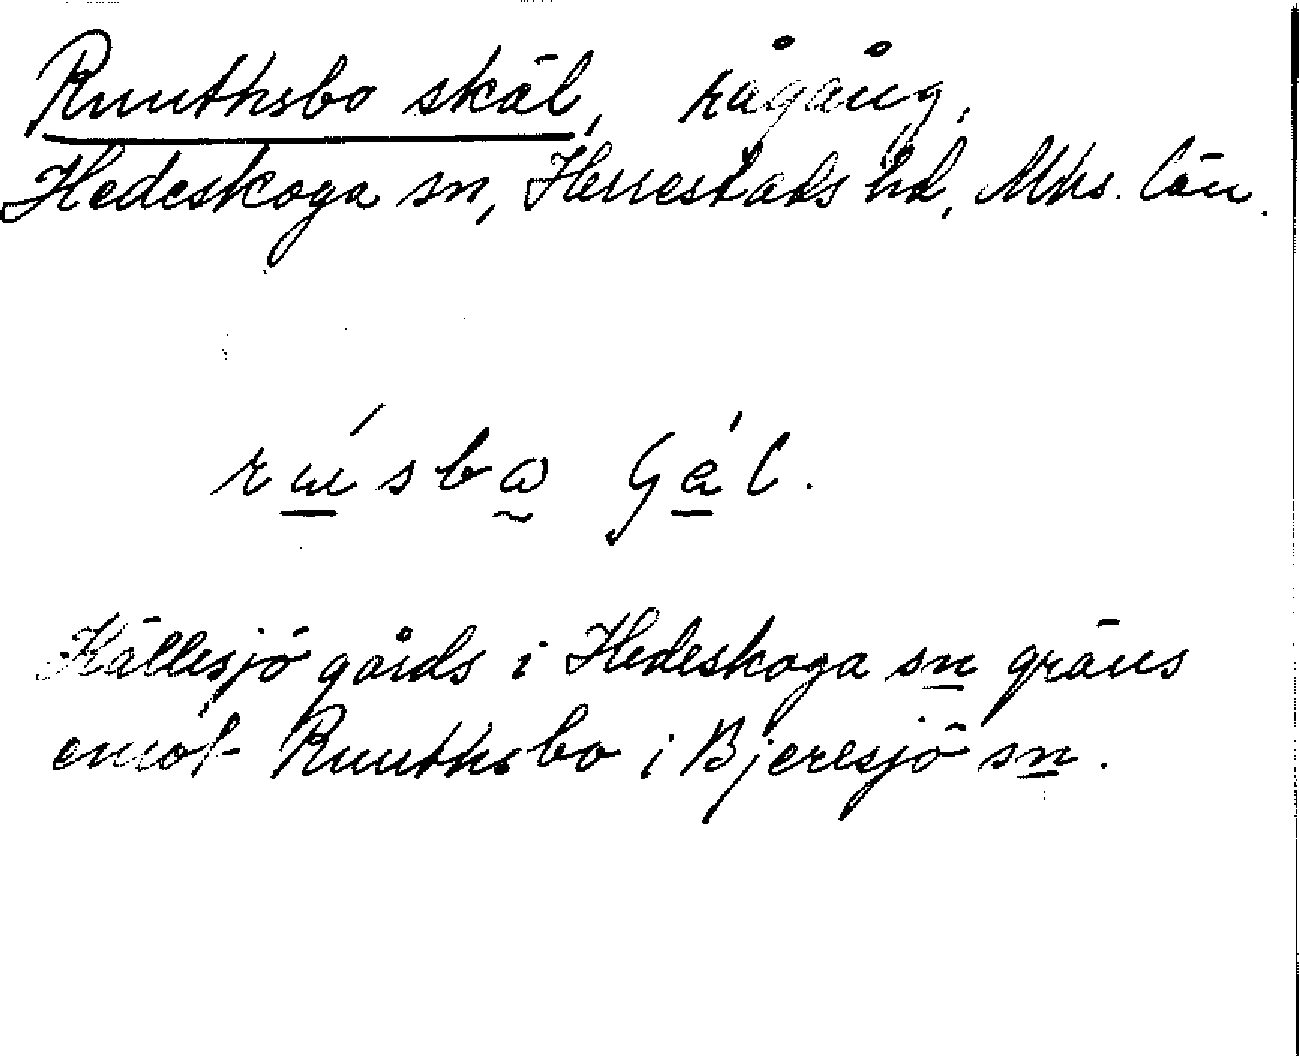 Ruuthsbo skäl, rågång,
Hedeskoga sn, Herrestads hd, Mhs. län.
Källesjö gårds i Hedeskoga sn gräns
emot Ruuthsbo i Bjeresjö sn.